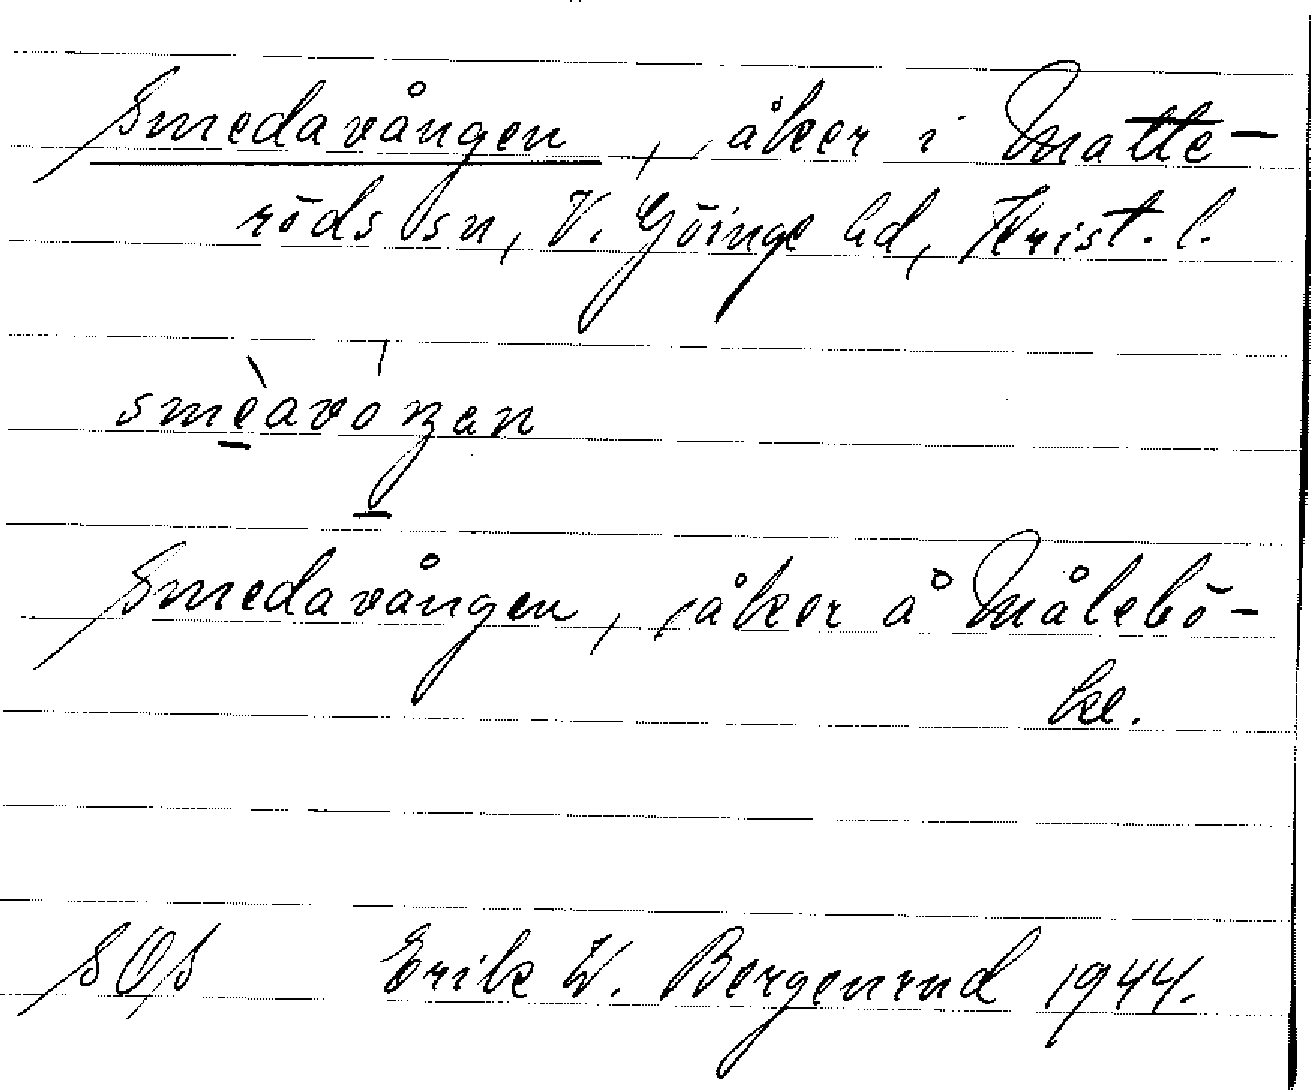 Smedavången, åker i Matte-
röds sn, V. Göinge hd, Krist. l.
smèavóŋen
Smedavången, åker å Målebö-
ke.
SOS Erik W. Bergenrud 1944.